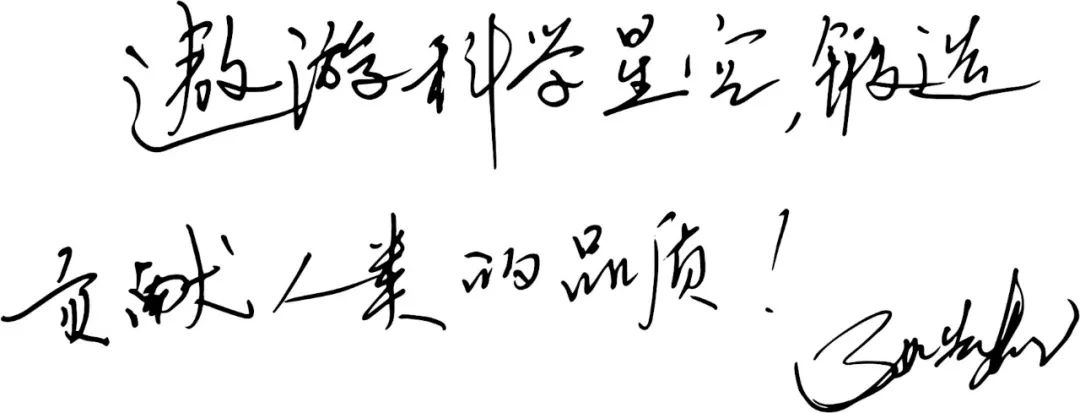 遨游科学星空,锻造
贡献人类的品质!